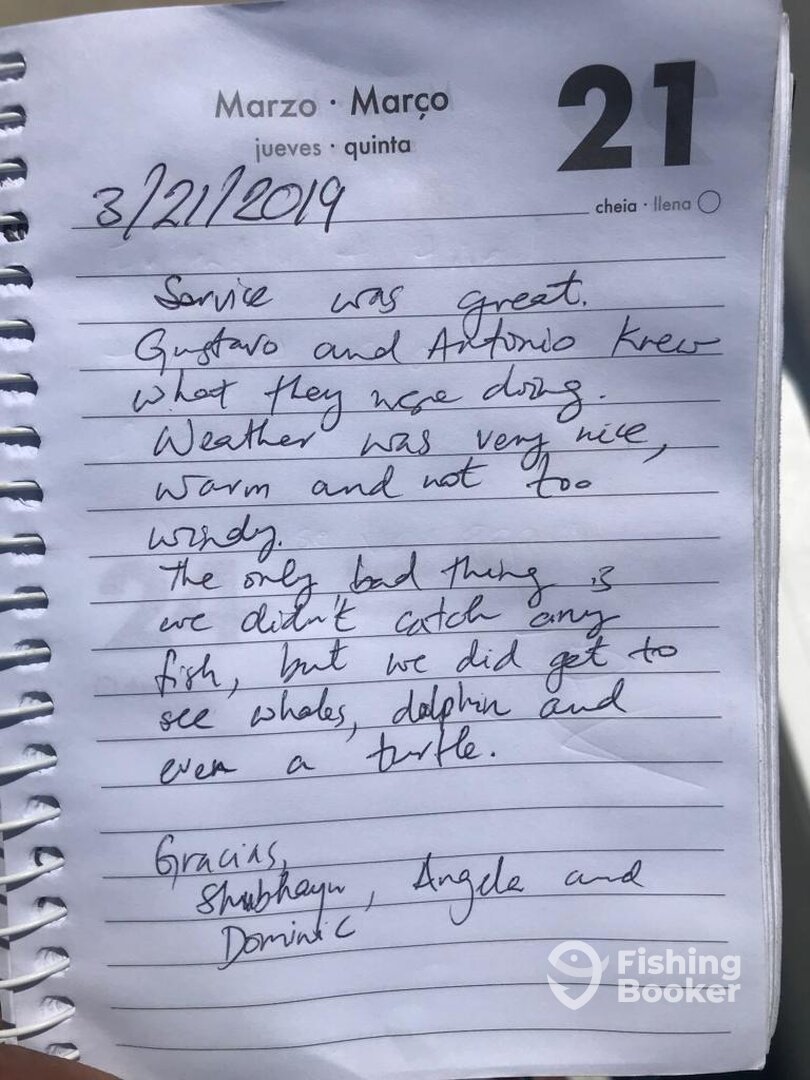 Marzo · Março
21
jueves · quinta
3/21/2019
cheia · llena
Service was great.
Gustavo and Antonio knew
what they were doing.
Weather was very nice,
warm and not too
windy.
The only bad thing is
we didn't catch any
fish, but we did get to
see whales, dolphin and
even a turtle.
Gracias,
Shubhayu, Angela and
Dominic
Fishing
Booker